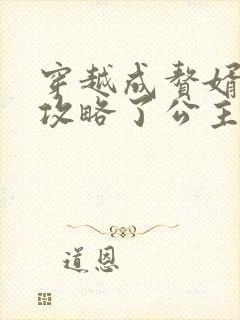 穿越成赘婿
攻略了公主
道恩